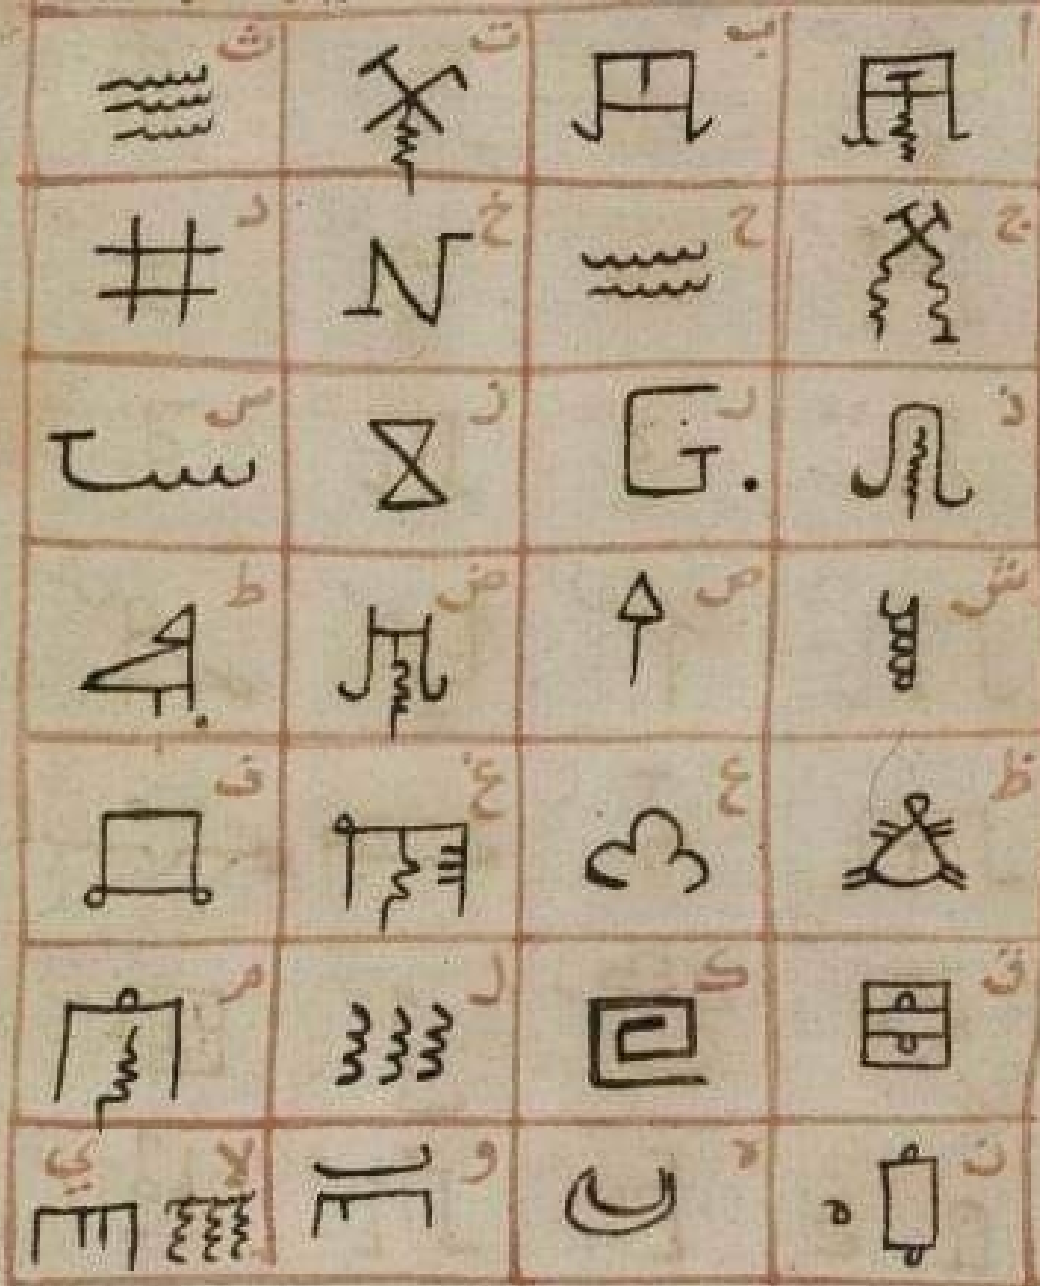 ا ب ت ث
ج ح خ د
ذ ر ز س
ش ص ض ط
ظ ع غ ف
ق ك ل م
ن ه و لا ي